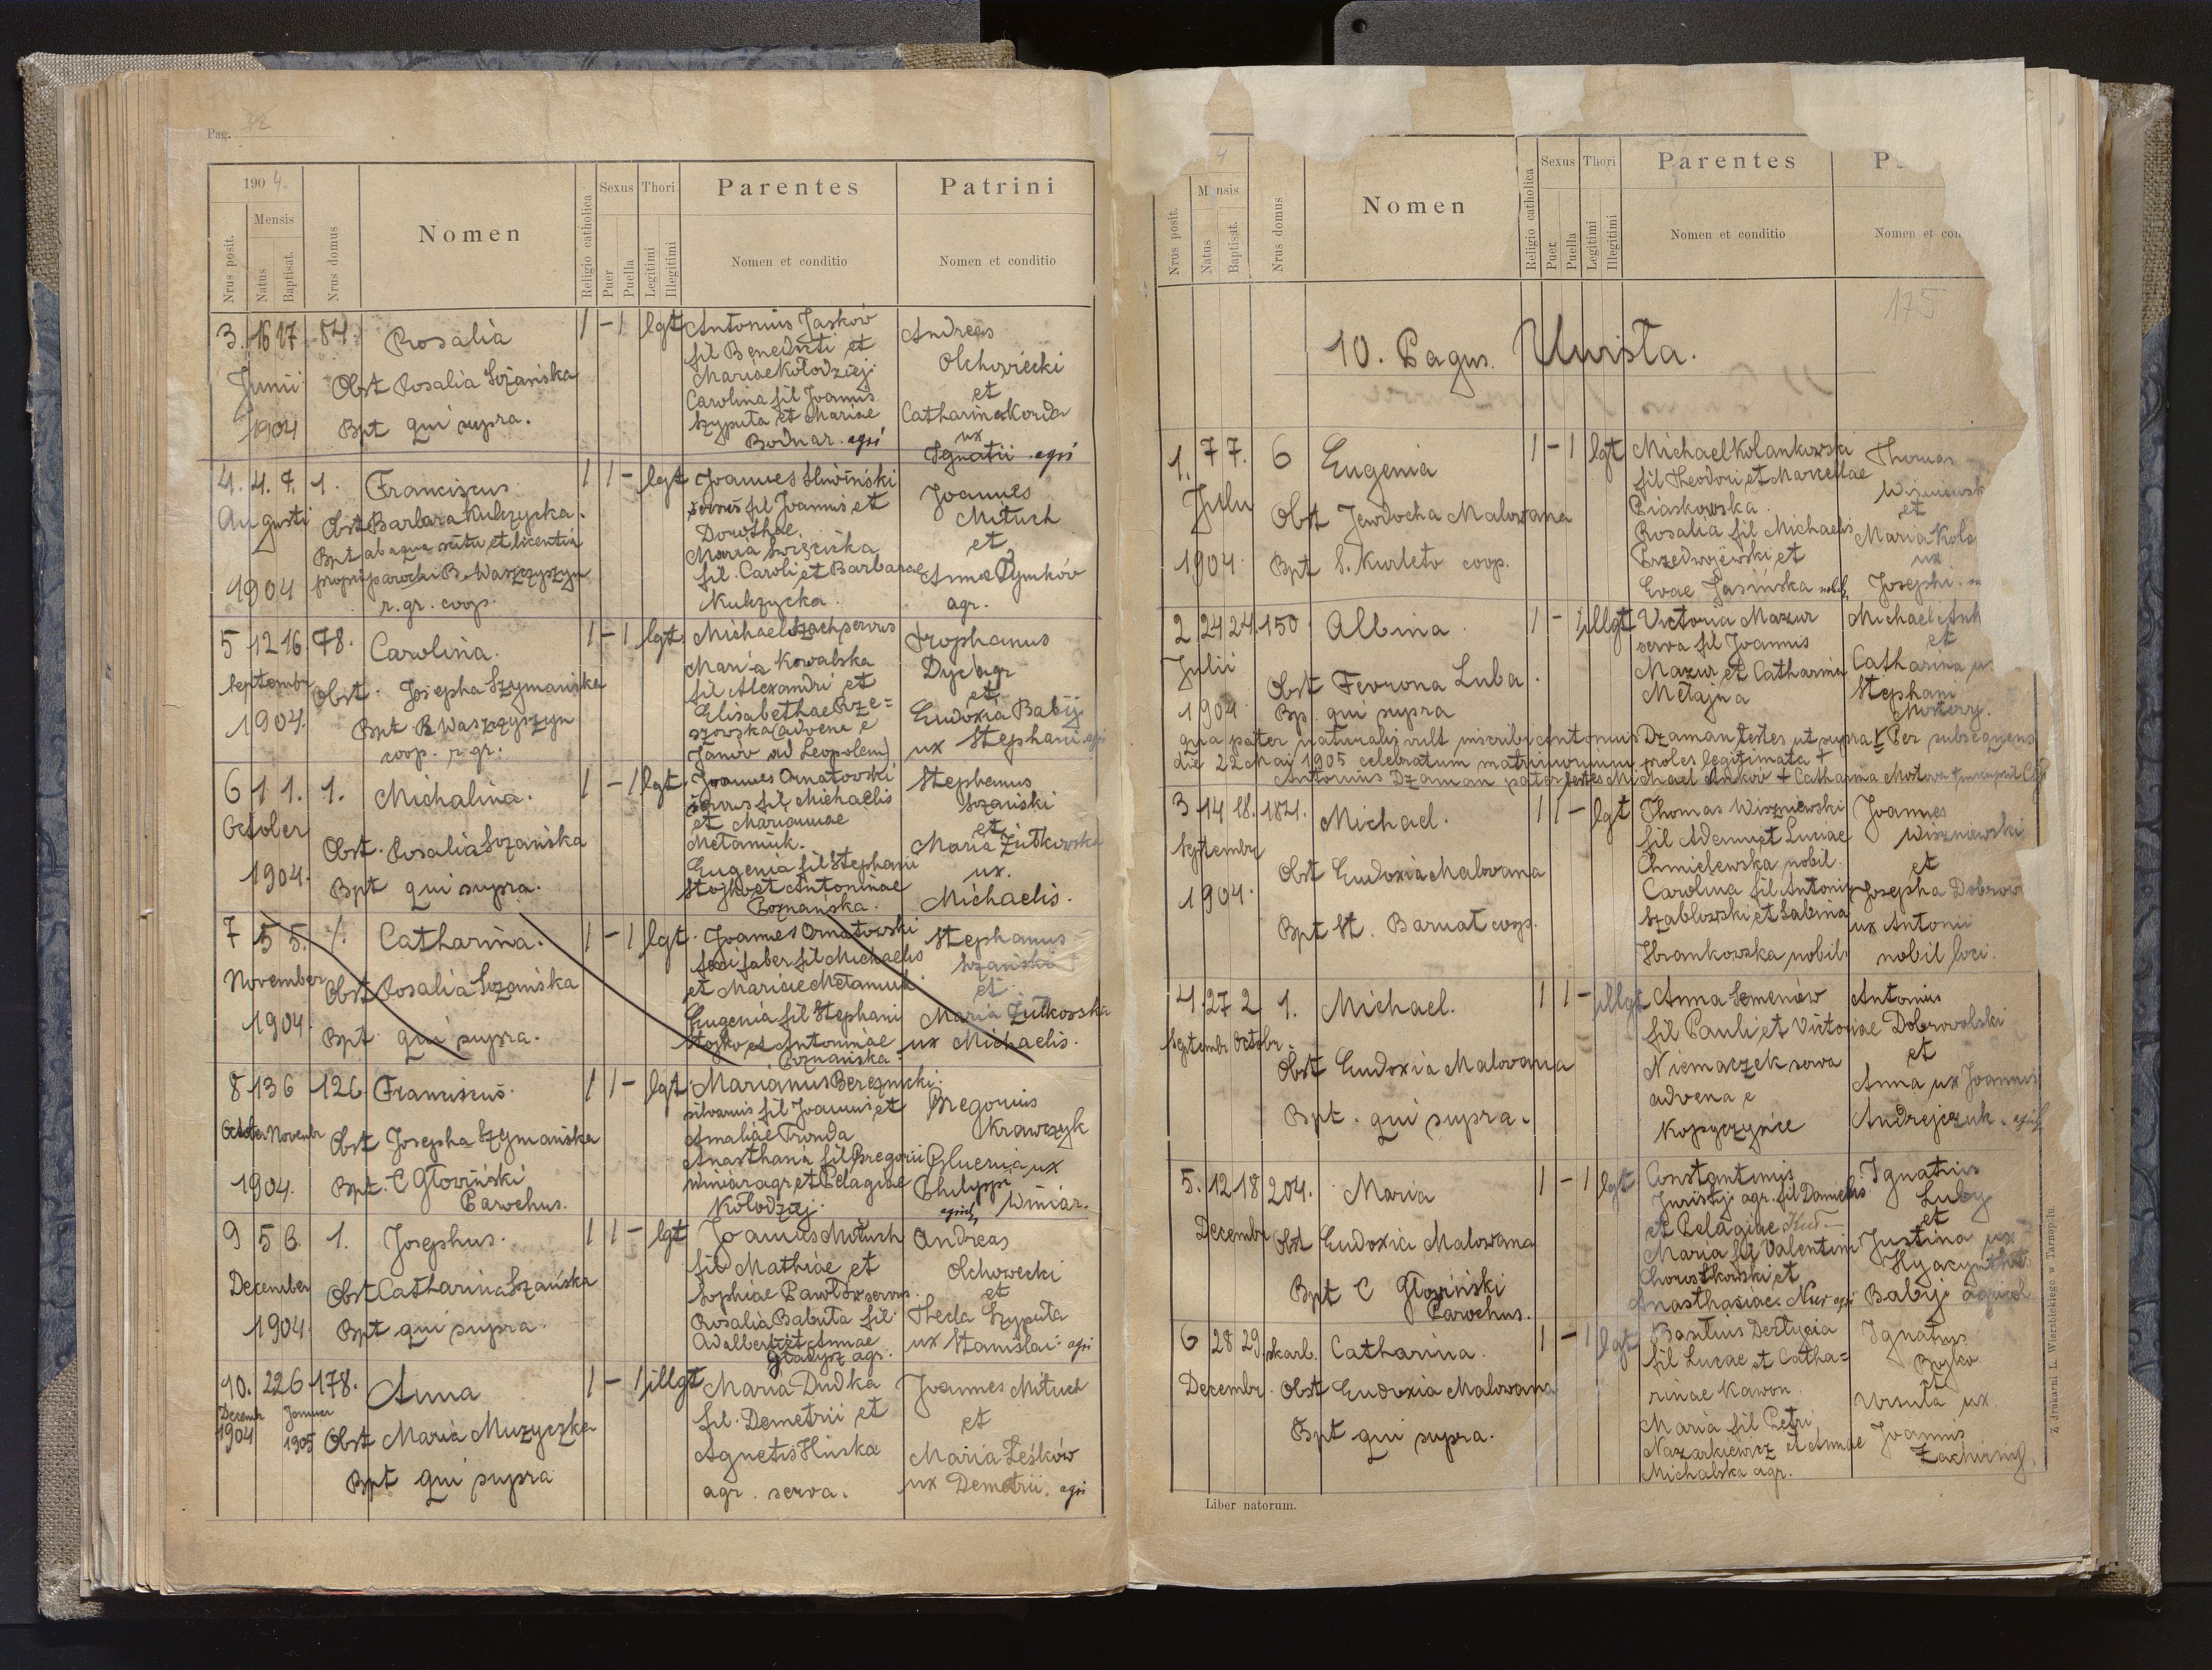 Pag. 32
1904.
Nrus posit.
Mensis
Natus
Baptisat.
Nrus domus
Nomen
Religio catholica
Sexus
Puer
Puella
Thori
Legitimi
Illegitimi
Parentes
Nomen et conditio
Patrini
Nomen et conditio
3. 16 17 84. Rosalia 1 - 1 lgt
Junii
1904
Obst Rosalia Sozańska
Bpt qui supra.
Antonius Jaskow
fil Benedicti et
Mariae Kołodziej
Carolina fil Joannis
Szyputa et Mariae
Bodnar. agri
Andreas
Olchowiecki
et
Catharina Korda
ux
Ignatii agri
4. 4. 7. 1. Franciscus 1 1 - lgt
Augusti
1904
Obst Barbara Kulczycka.
Bpt ab aqua scitu et licentia
proprii parochi B. Waszczyszyn
r. gr. coop.
Joannes Sliwiński
servus fil Joannis et
Dorothae
Maria Swięcicka
fil. Caroli et Barbarae
Kulczycka.
Joannes
Mituch
et
Anna Tymków
agr.
5 12 16. 78. Carolina. 1 - 1 lgt
Septembr
1904.
Obst. Josepha Szymańska
Bpt B. Waszczyszyn
coop. r. gr.
Michael Szach servus
Maria Kowalska
fil Alexandri et
Elisabethae Rze=
szowska (advena e
Janów ad Leopolem)
Trophanus
Dyc agr
et
Eudoxia Babij
ux Stephani agri
6 1 1. 1. Michalina. 1 - 1 lgt
October
1904.
Obst. Rosalia Sozańska
Bpt qui supra.
Joannes Ornatowski
servus fil Michaelis
et Mariannae
Metaniuk.
Eugenia fil Stephani
Stojko et Antoninae
Poznańska.
Stephanus
Sozański
et
Maria Żutkowska
ux.
Michaelis.
7 5 5. 1. Catharina. 1 - 1 lgt.
November
1904.
Obst Rosalia Sozańska
Bpt. qui supra.
Joannes Ornatowski
faber fil Michaelis
et Mariae Metaniuk
Eugenia fil Stephani
Stojko et Antoninae
Poznańska.
Stephanus
Sozański
et
Maria Żutkowska
ux Michaelis.
8 13 6 126. Franciscus. 1 1 - lgt
October Novembr
1904.
Obst Josepha Szymańska
Bpt. C Głowiński
Parochus.
Marianus Bereznicki
silvanus fil Joannis et
Amaliae Tronda
Anasthasia fil Gregorii
Winiar agr et Pelagiae
Kołodziej.
Gregorius
Krawczyk
ux
Philippi
Winiar.
9 5 8. 1. Josephus. 1 1 - lgt
December
1904.
Obst Catharina Sozańska
Bpt qui supra.
Joannes Mituch
fil Mathiae et
Sophiae Pawłów servus.
Rosalia Babuta fil
Adalberti et Annae
Gładysz agr.
Andreas
Olchowecki
et
Thecla Szyputa
ux Stanislai agri
10. 22 6 178. Anna 1 - 1 illgt
Decembr Januar
1904 1905
Obst Maria Muzyczka
Bpt qui supra
Maria Dudka
fil. Demetrii et
Agnetis Hliska
agr. serva.
Joannes Mituch
et
Maria Leśków
ux Demetrii. agri
4
Nrus posit.
Mensis
Natus
Baptisat.
Nrus domus
Nomen
Religio catholica
Sexus
Puer
Puella
Thori
Legitimi
Illegitimi
Parentes
Nomen et conditio
P
Nomen et con
175
10. Pagus. Uwisla.
1. 7 7. 6 Eugenia 1 - 1 lgt
Julii
1904.
Obst Jewdocha Malowana
Bpt S. Kurleto coop.
Michael Kolankowski
fil Theodori et Marcellae
Piaskowska.
Rosalia fil Michaelis
Przedwojewski et
Evae Jasińska nobil
Thomas
Wiśniewsk
et
Maria Kola
ux
Josephi.
2 24 24. 150 Albina. 1 - 1 illgt
Julii
1904
Obst Fevrona Luba.
Bp. qui supra
Victoria Mazur
serva fil Joannis
Mazur et Catharina
Metajna
Michael Ank
et
Catharina u
Stephani
qua pater naturalis vult inscribi Antonius Dzaman testes ut supra Per subsequens
die 22 Maj 1905 celebratum matrimonium proles legitimata +
Antonius Dzaman pater testes Michael Ankow + Catharina
3 14 18. 184. Michael. 1 1 - lgt
Septembr
1904.
Obst Eudoxia Malowana
Bpt St. Baruat coop.
Thomas Wiszniewski
fil Adami et Luciae
Chmielewska nobil.
Carolina fil Antonii
Szablowski et Sabina
Hrankowska nobil.
Joannes
Wiszniewski
et
Josepha Dobrow
ux Antonii
nobil loci.
4. 27 2 1. Michael. 1 1 - illgt
Septembr Octobr.
Obst Eudoxia Malowana
Bpt. qui supra.
Anna Semeniów
fil Pauli et Victoriae
Niemaczek serva
advena e
Kopyczyńce
Antonius
Dobrowolski
et
Anna ux Joannis
Andrejczuk.
5. 12 18 204. Maria 1 - 1 lgt
Decembr
Obst Eudoxia Malowana
Bpt C Głowiński
Parochus.
Constantinus
agr. fil Danielis
et Pelagiae
Maria fil Valentini
Chorostkowski et
Anasthasiae. agri
Ignatius
Luby
et
Justina ux
Hyacynthi
Babij agricol
6 28 29. skarb. Catharina. 1 - 1 lgt
Decembr.
Obst Eudoxia Malowana
Bpt qui supra.
Basilius Dertycia
fil Lucae et Catha=
rinae Kawon.
Maria fil Petri
Nazarkiewicz et Annae
Michalska agr.
Ignatius
Bojko
et
Ursula ux.
Joannis
Liber natorum.
Z drukarni L. Wierzbickiego w Tarnopolu.